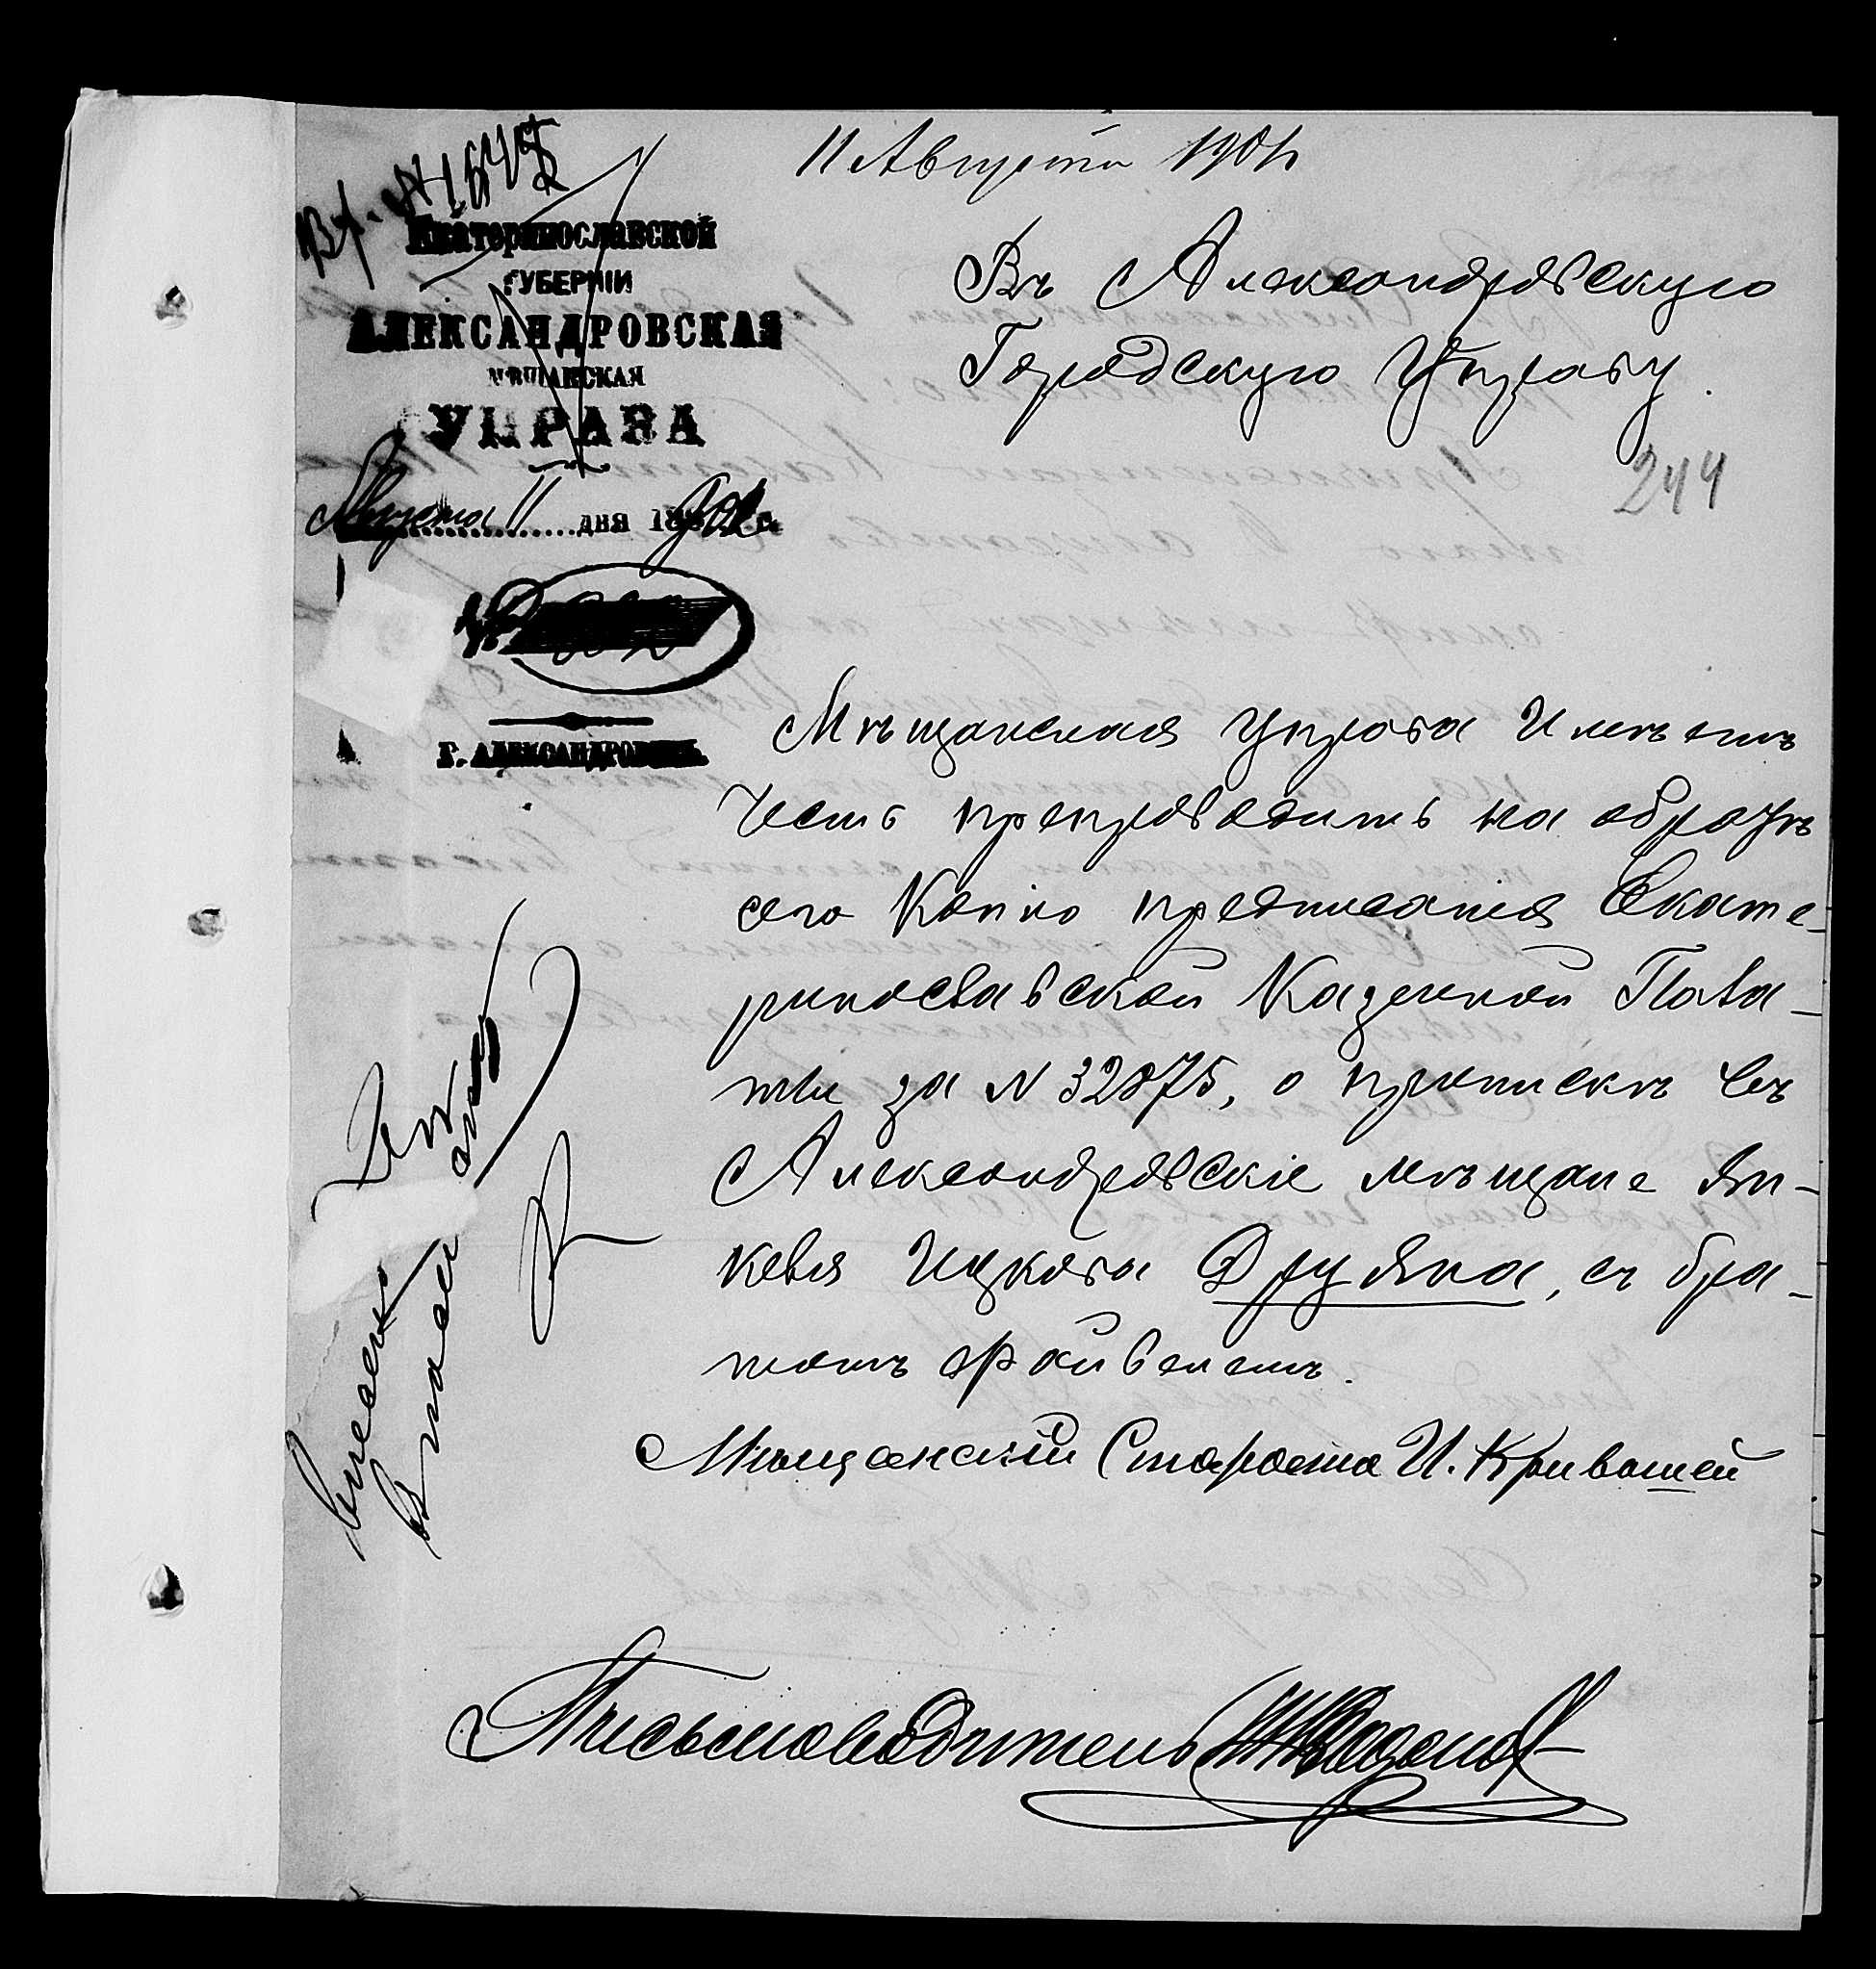 11 Августа 1901
Екатеринославской
ГУБЕРНІИ
АЛЕКСАНДРОВСКАЯ
МѢЩАНСКАЯ
УПРАВА
Августа 11 дня 1901 г.
Г. АЛЕКСАНДРОВСКЪ
Въ Александровскую
Городскую Управу.
244
Мѣщанская Управа Имѣетъ
честь препроводить на образѣ
сего Копію предписанія Екате-
ринославской Казенной Пала-
ты за N 32875, о припискѣ въ
Александровскіе мѣщане Ян-
келя Ицкова Друяна, съ бра-
томъ Файвелемъ.
Мѣщанскій Староста И. Кривошей
Письмоводитель